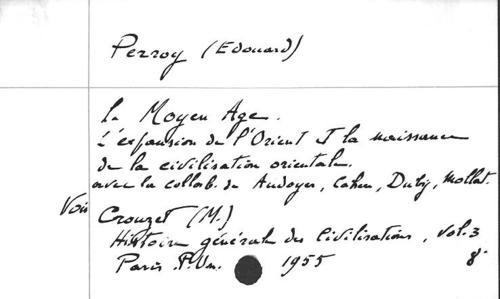 Perroy (Edouard)
Le Moyen Age.
L'expansion de l'Orient et la naissance
de la civilisation orientale.
avec la collab. de Audoyer, Cahen, Duby, Mollat.
Voir Crouzet (M.)
Histoire générale des Civilisations, vol. 3
Paris P.Un. 1955 8°